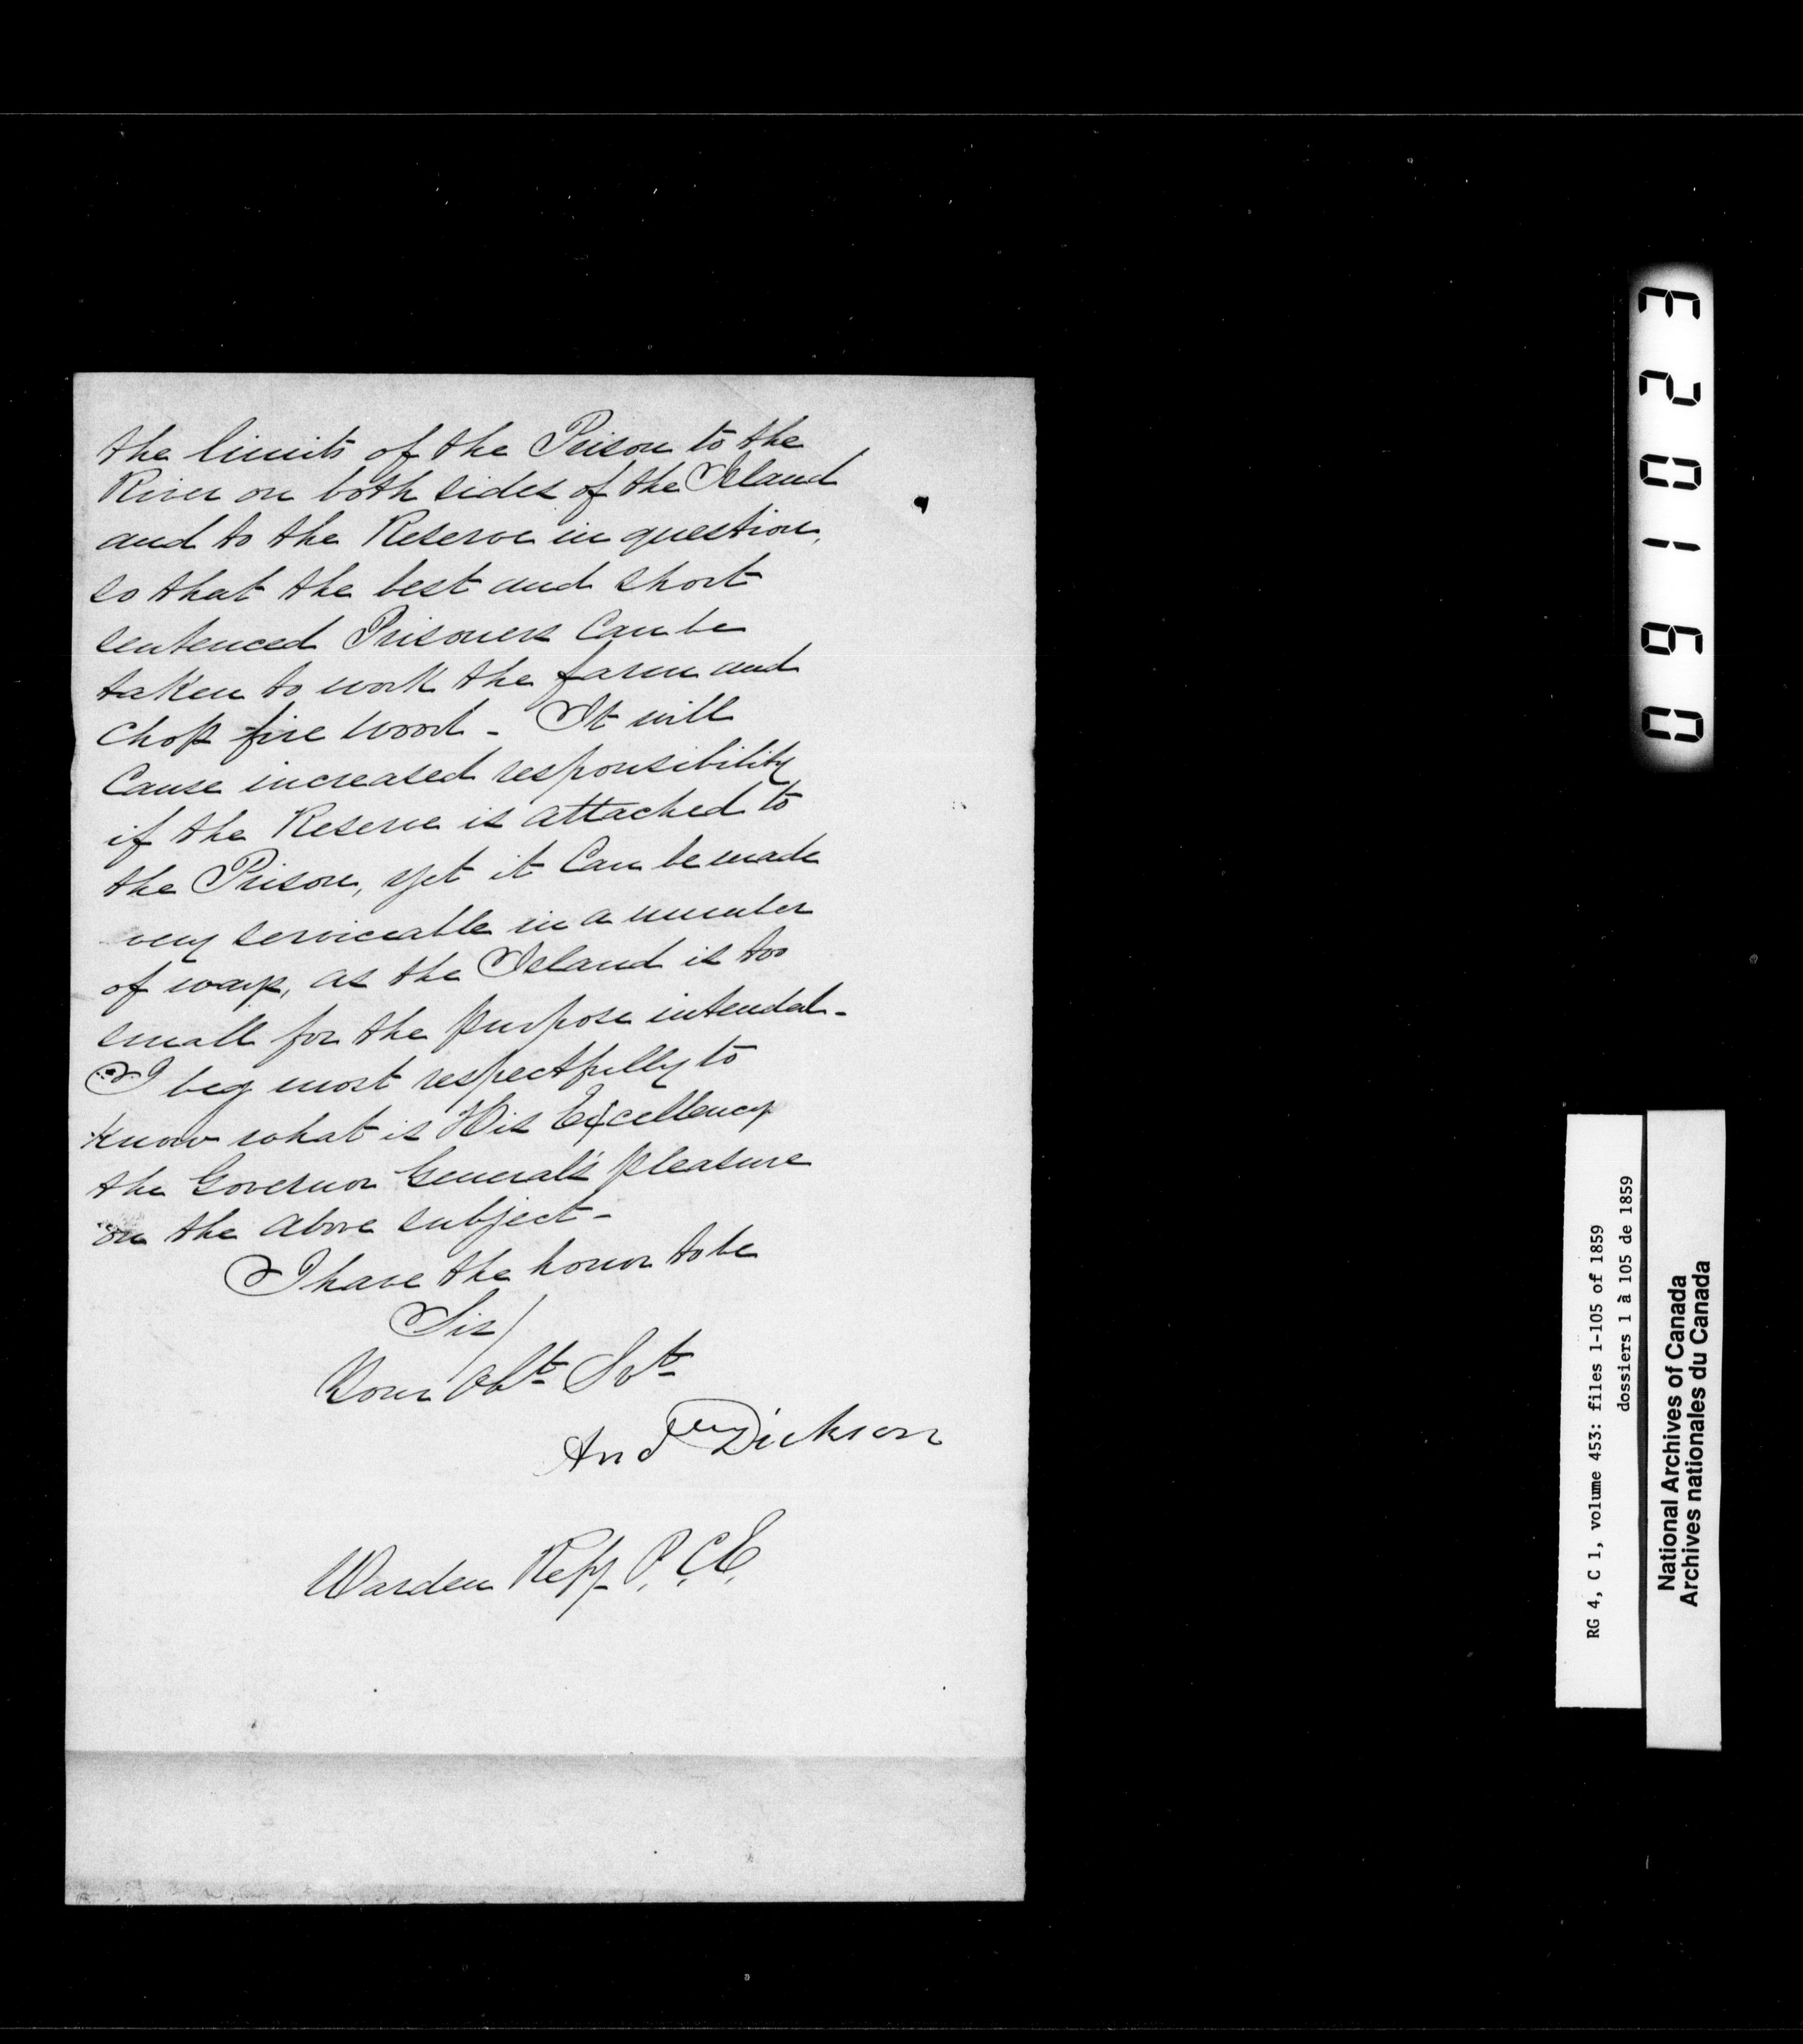 the limits of the Prison to the
River on both sides of the Island
and to the Reserve in question,
so that the best and short
sentenced Prisoners Can be
taken to work the farm and
Chop fire wood - It will
Cause increased responsibility
if the Reserve is attached to
the Prison, yet it Can be made
very serviceable in a number
of ways, as the Island is too
small for the purpose intended -
I beg most respectfully to
know what is His Excellency
the Governor General's pleasure
on the above subject -
I have the honor to be
Sir/
Your Obt Svt
Andw Dickson
Warden Refy P. C. E.
091023
RG 4, C 1, volume 453: files 1-105 of 1859
dossiers 1 à 105 de 1859
National Archives of Canada
Archives nationales du Canada